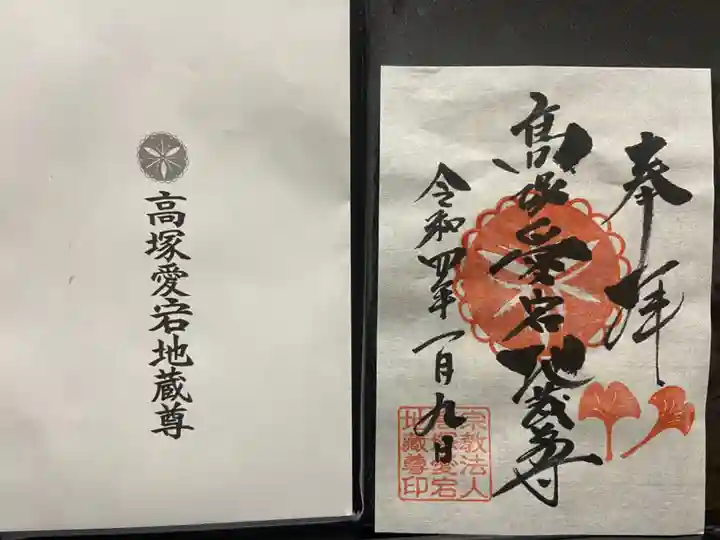 高塚愛宕地蔵尊
奉拝
高塚愛宕地蔵尊
令和四年一月九日
宗教法人
高塚愛宕
地蔵尊印